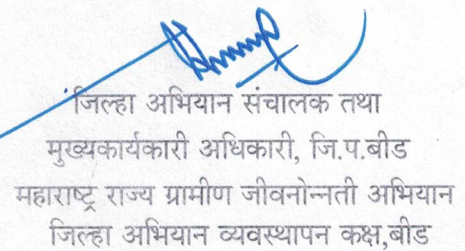 जिल्हा अभियान संचालक तथा
मुख्यकार्यकारी अधिकारी, जि.प.बीड
महाराष्ट्र राज्य ग्रामीण जीवनोन्नती अभियान
जिल्हा अभियान व्यवस्थापन कक्ष,बीड